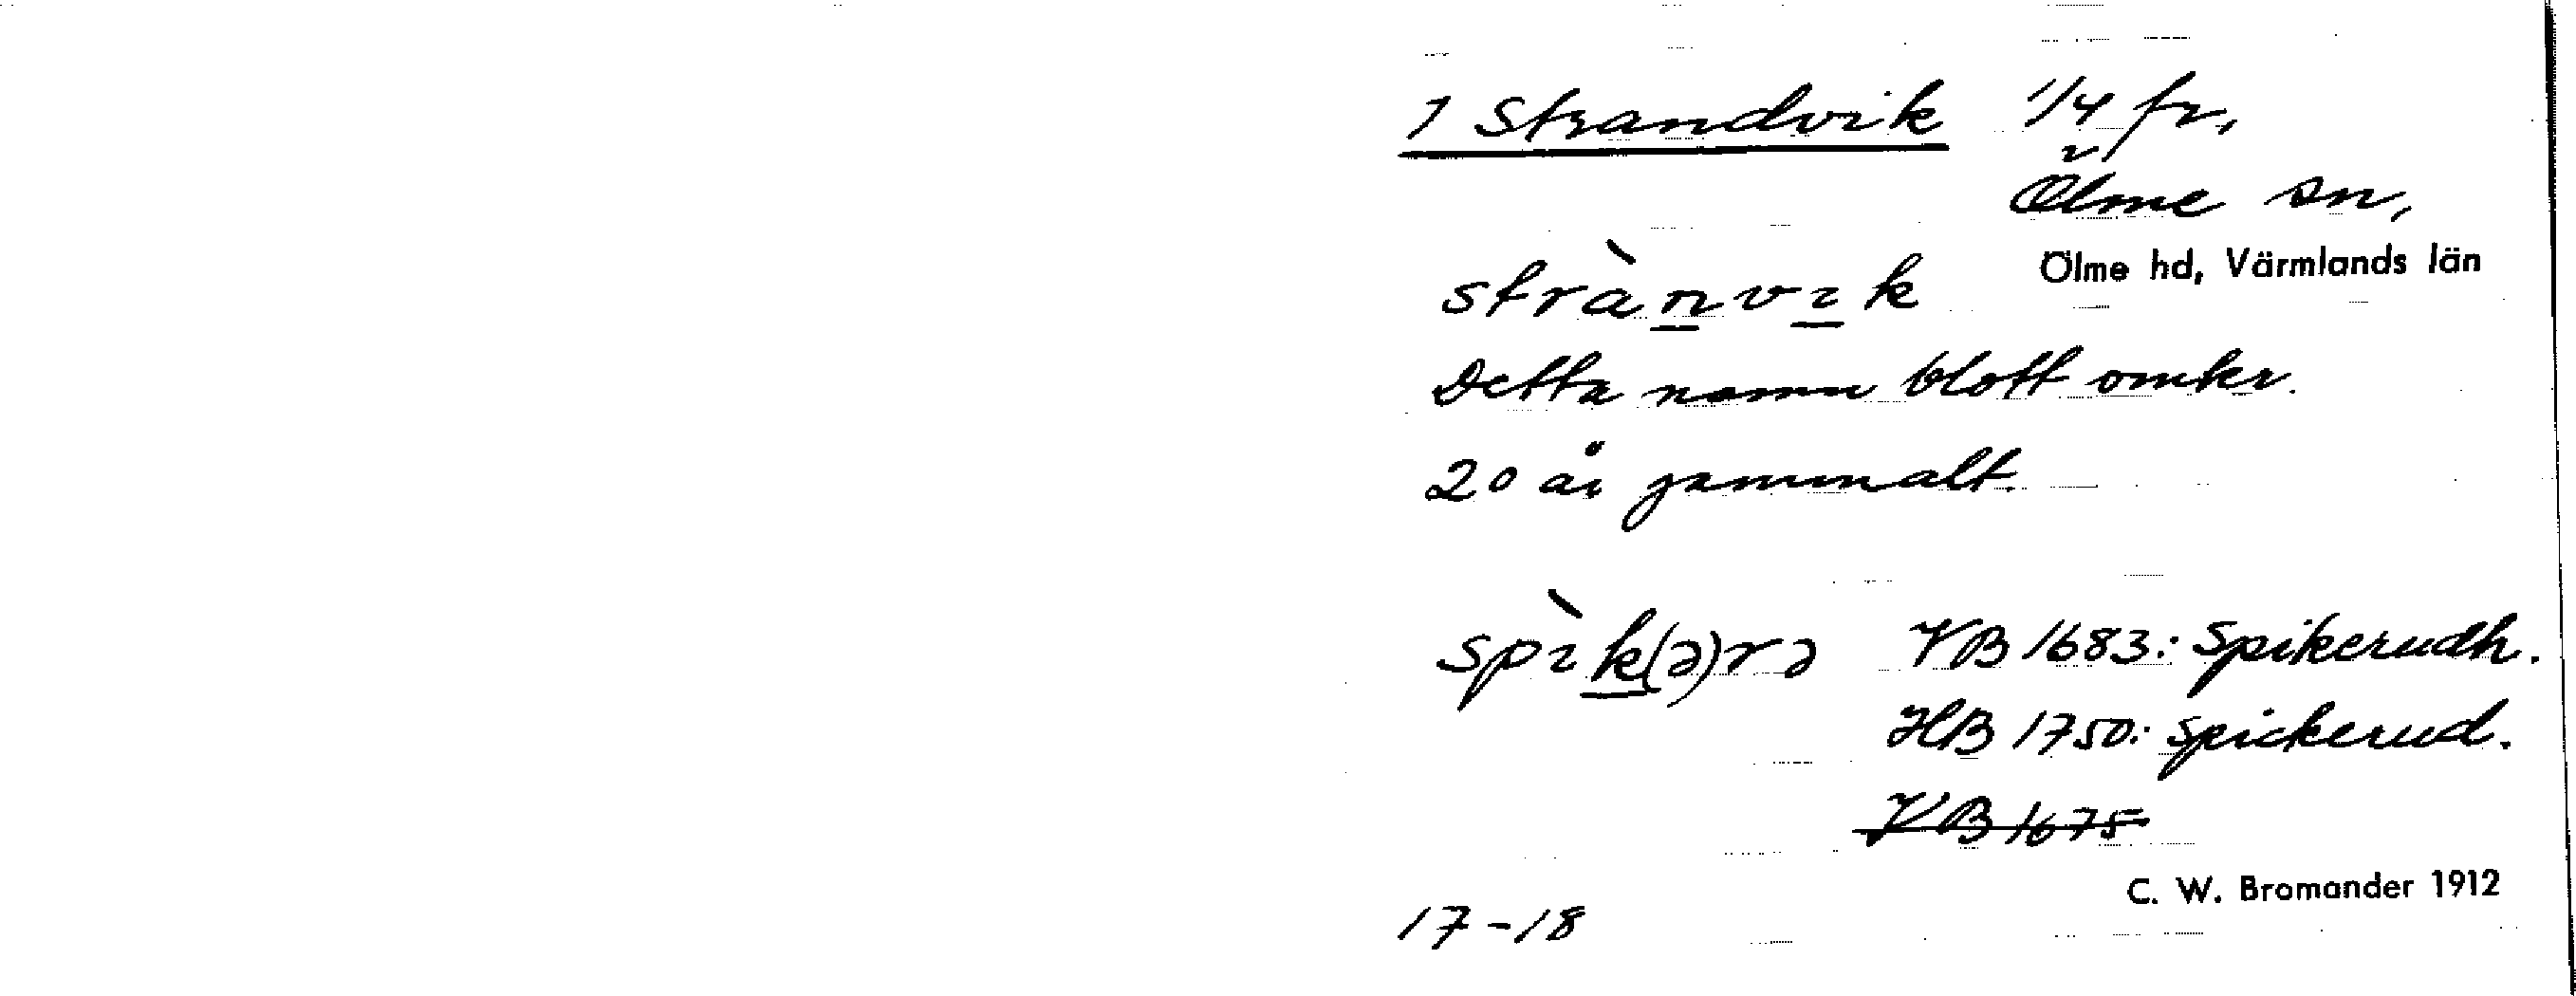 1 Strandvik 1/4 fr,
Ölme sn,
Ölme hd, Värmlands län
strànvık
Detta namn blott omkr.
20 år gammalt.
spìk(ə)rə VB 1683: Spikerudh.
HB 1750: Spickerud.
VB 1675
C. W. Bromander 1912
17-18